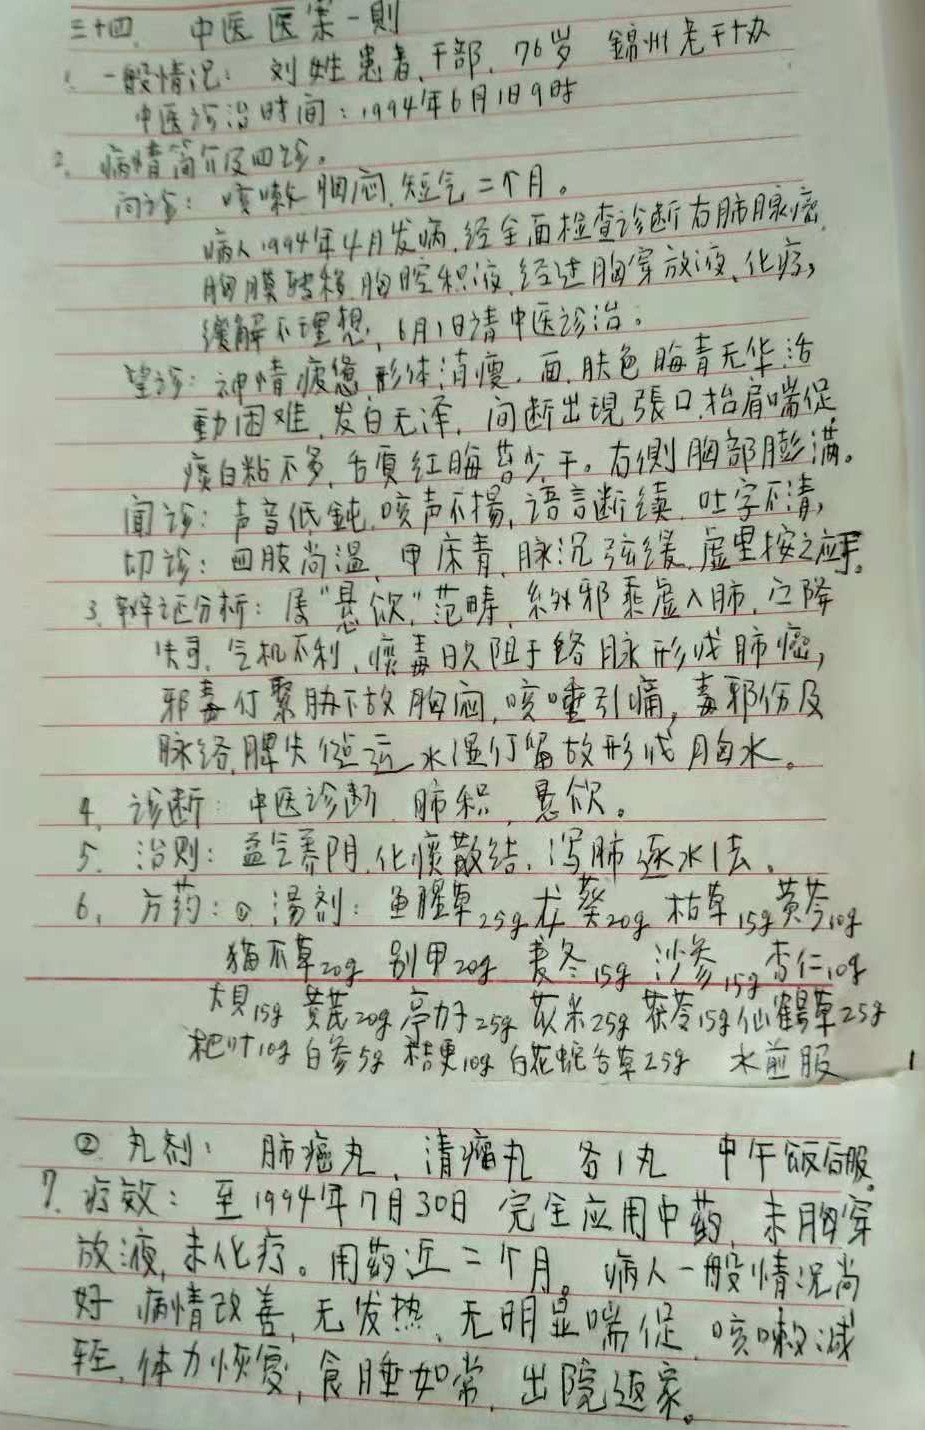 三十四、中医医案一則
1、一般情况：刘姓患者、干部、76岁 錦州老干十办
中医诊治时间：1994年6月1日9时
2、病情简介及四诊。
问诊：咳嗽胸闷、短气二个月。
病人1994年4月发病、经全面检查诊断右肺腺癌、
胸膜转移、胸腔积液、经过胸穿放液、化疗，
缓解不理想，6月1日请中医诊治。
望诊：神情疲惫形体消瘦、面、肤色晦青无华活
動困难、发白无泽，间断出現張口抬肩喘促、
痰白粘不多，舌質红晦苔少干。右側胸部膨满。
闻诊：声音低鈍、咳声不揚、语言断续、吐字不清，
切诊：四肢尚温、甲床青、脉沉弦缓、虚里按之应手。
3、辩证分析：属“悬饮”范畴，系外邪乘虚入肺，宣降
失司，气机不利、痰毒日久阻于络脉形成肺癌，
邪毒佇聚胁下故胸闷，咳唾引痛，毒邪伤及
脉络，脾失健运水湿佇留故形成胸水。
4、诊断：中医诊断 肺积、悬饮。
5、治则：益气养阴、化痰散结、泻肺逐水法、
6、方药：① 湯剂：鱼腥草25g 龙葵20g 枯草15g 黄芩10g
猫爪草20g 别甲20g 麦冬15g 沙参15g 杏仁10g
大貝15g 黄芪20g 亭力子25g 苡米25g 茯苓15g 仙鶴草25g
杷叶10g 白参5g 桔更10g 白花蛇舌草25g 水煎服
② 丸剂：肺癌丸、清瘤丸 各1丸 中午飯后服。
7、疗效：至1994年7月30日 完全应用中药，未胸穿
放液，未化疗。用药近二个月。病人一般情况尚
好 病情改善，无发热、无明显喘促，咳嗽减
轻，体力恢复，食睡如常，出院返家。